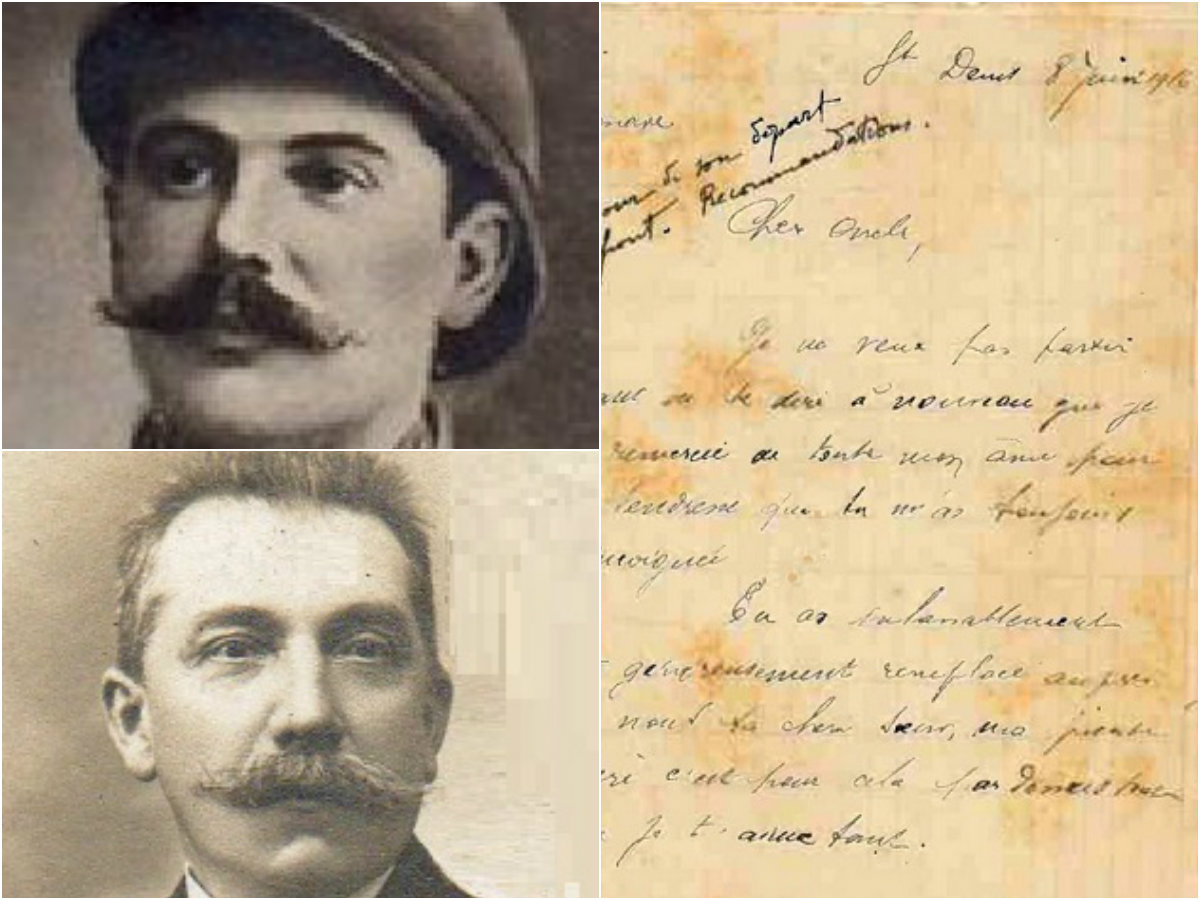 St Denis 8 juin 1916
jour de son départ
front. Recommandations.
Cher Oncle,
Je ne veux pas partir
te dire à nouveau que je
remercie de toute mon âme pour
tendresse que tu m'as toujours
Tu as inlassablement
généreusement remplacé auprès
nous ta chère soeur, ma
c'est pour cela par dessus tout
je t'aime tant.